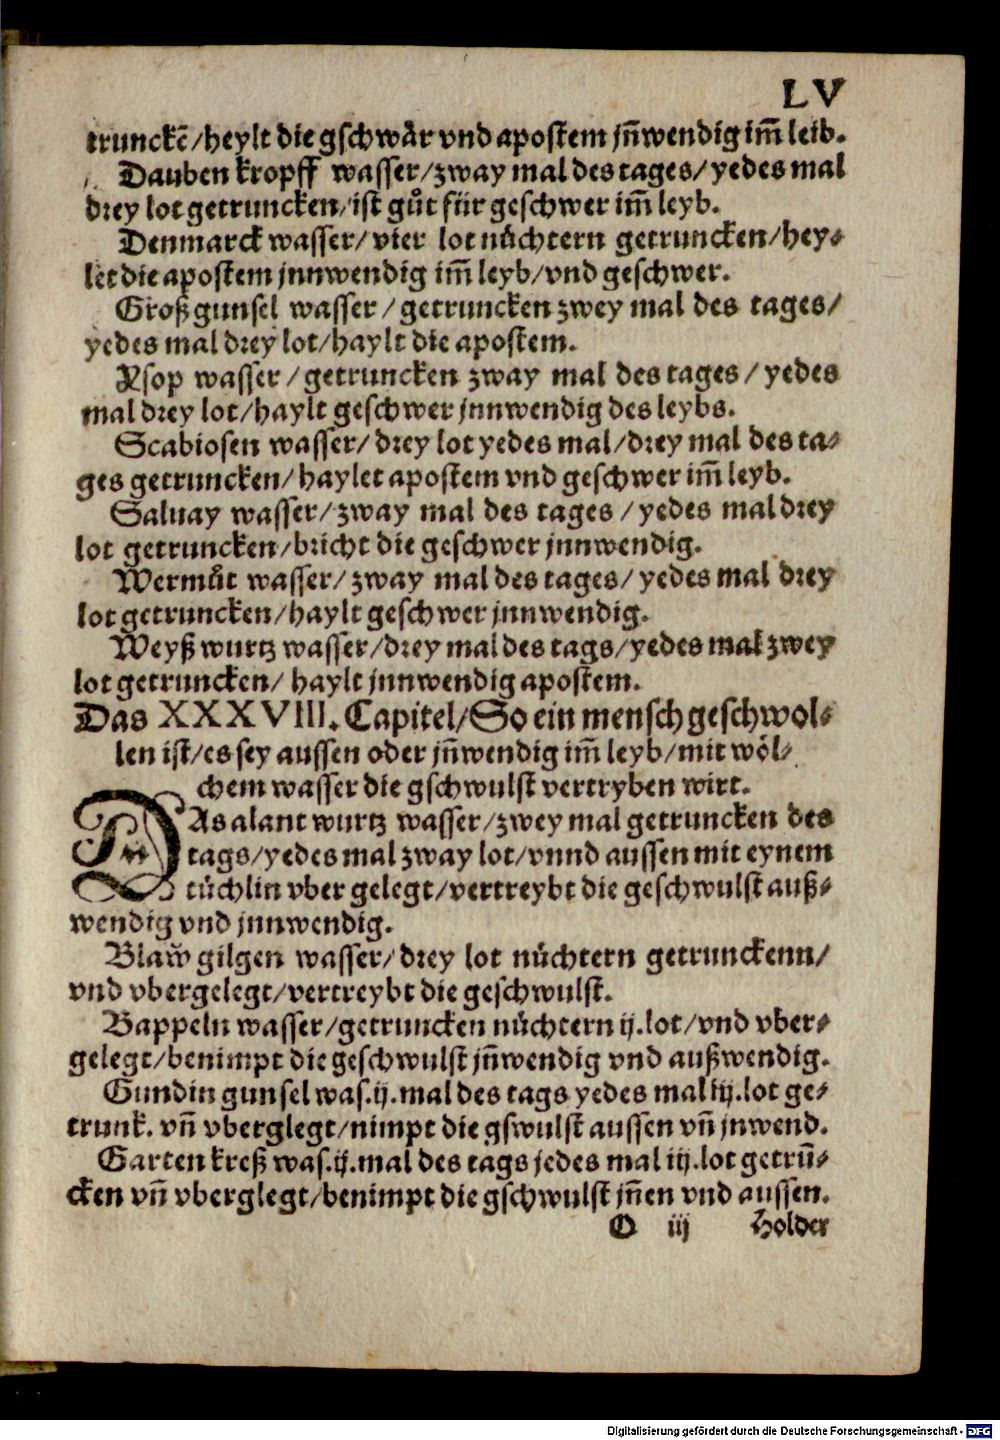 LV
trunckē/heylt die gschwår vnd apostem jn̄wendig im̄ leib.
Dauben kropff wasser/zway mal des tages/yedes mal
drey lot getruncken/ist gůt für geschwer im̄ leyb.
Denmarck wasser/vier lot nůchtern getruncken/hey⸗
let die apostem jnnwendig im̄ leyb/vnd geschwer.
Groß gunsel wasser/getruncken zwey mal des tages/
yedes mal drey lot/haylt die apostem.
Ysop wasser/getruncken zway mal des tages/yedes
mal drey lot/haylt geschwer jnnwendig des leybs.
Scabiosen wasser/drey lot yedes mal/drey mal des ta⸗
ges getruncken/haylet apostem vnd geschwer im̄ leyb.
Saluay wasser/zway mal des tages/yedes mal drey
lot getruncken/bricht die geschwer jnnwendig.
Wermůt wasser/zway mal des tages/yedes mal drey
lot getruncken/haylt geschwer jnnwendig.
Weyß wurtz wasser/drey mal des tags/yedes mal zwey
lot getruncken/haylt jnnwendig apostem.
Das XXXVIII. Capitel/So ein mensch geschwol⸗
len ist/es sey aussen oder jn̄wendig im̄ leyb/mit wöl⸗
chem wasser die gschwulst vertryben wirt.
DAs alant wurtz wasser/zwey mal getruncken des
tags/yedes mal zway lot/vnnd aussen mit eynem
tůchlin vber gelegt/vertreybt die geschwulst auß⸗
wendig vnd jnnwendig.
Blaw̌ gilgen wasser/drey lot nůchtern getrunckenn/
vnd vbergelegt/vertreybt die geschwulst.
Bappeln wasser/getruncken nůchtern ij.lot/vnd vber⸗
gelegt/benimpt die geschwulst jn̄wendig vnd außwendig.
Gundin gunsel was.ij.mal des tags yedes mal iij.lot ge⸗
trunk. vn̄ vberglegt/nimpt die gswulst aussen vn̄ jnwend.
Garten kreß was.ij.mal des tags jedes mal iij.lot getrū⸗
cken vn̄ vberglegt/benimpt die gschwulst jn̄en vnd aussen.
O iij Holder
Digitalisierung gefördert durch die Deutsche Forschungsgemeinschaft - DFG